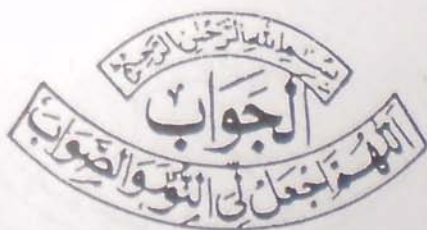 بِسْمِ اللهِ الرَّحْمٰنِ الرَّحِيْمِ
اَلْجَوَابْ
اَللّٰهُمَّ اجْعَلْ لِّی النُّوْرَ وَالصَّوَابْ